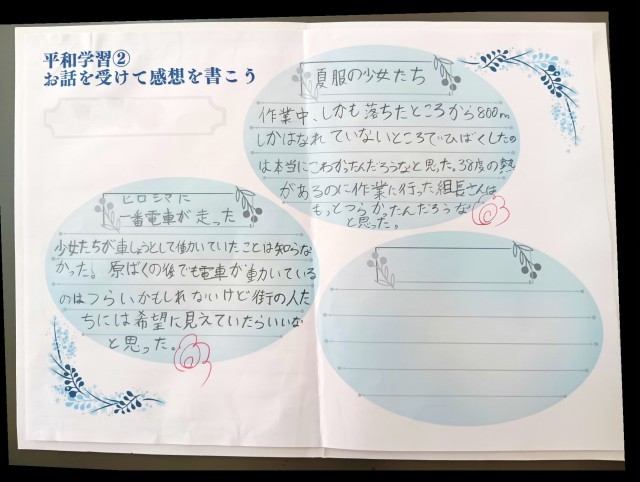 平和学習②
お話を受けて感想を書こう
夏服の少女たち
作業中、しかも落ちたところから800m
しかはなれていないところでひばくしたの
は本当にこわかったんだろうなと思った。38度の熱
があるのに作業に行った組長さんは
もっとつらかったんだろうな
と思った。
ヒロシマに
一番電車が走った
少女たちが車しょうとして働いていたことは知らな
かった。原ばくの後でも電車が動いている
のはつらいかもしれないけど街の人た
ちには希望に見えていたらいいな
と思った。